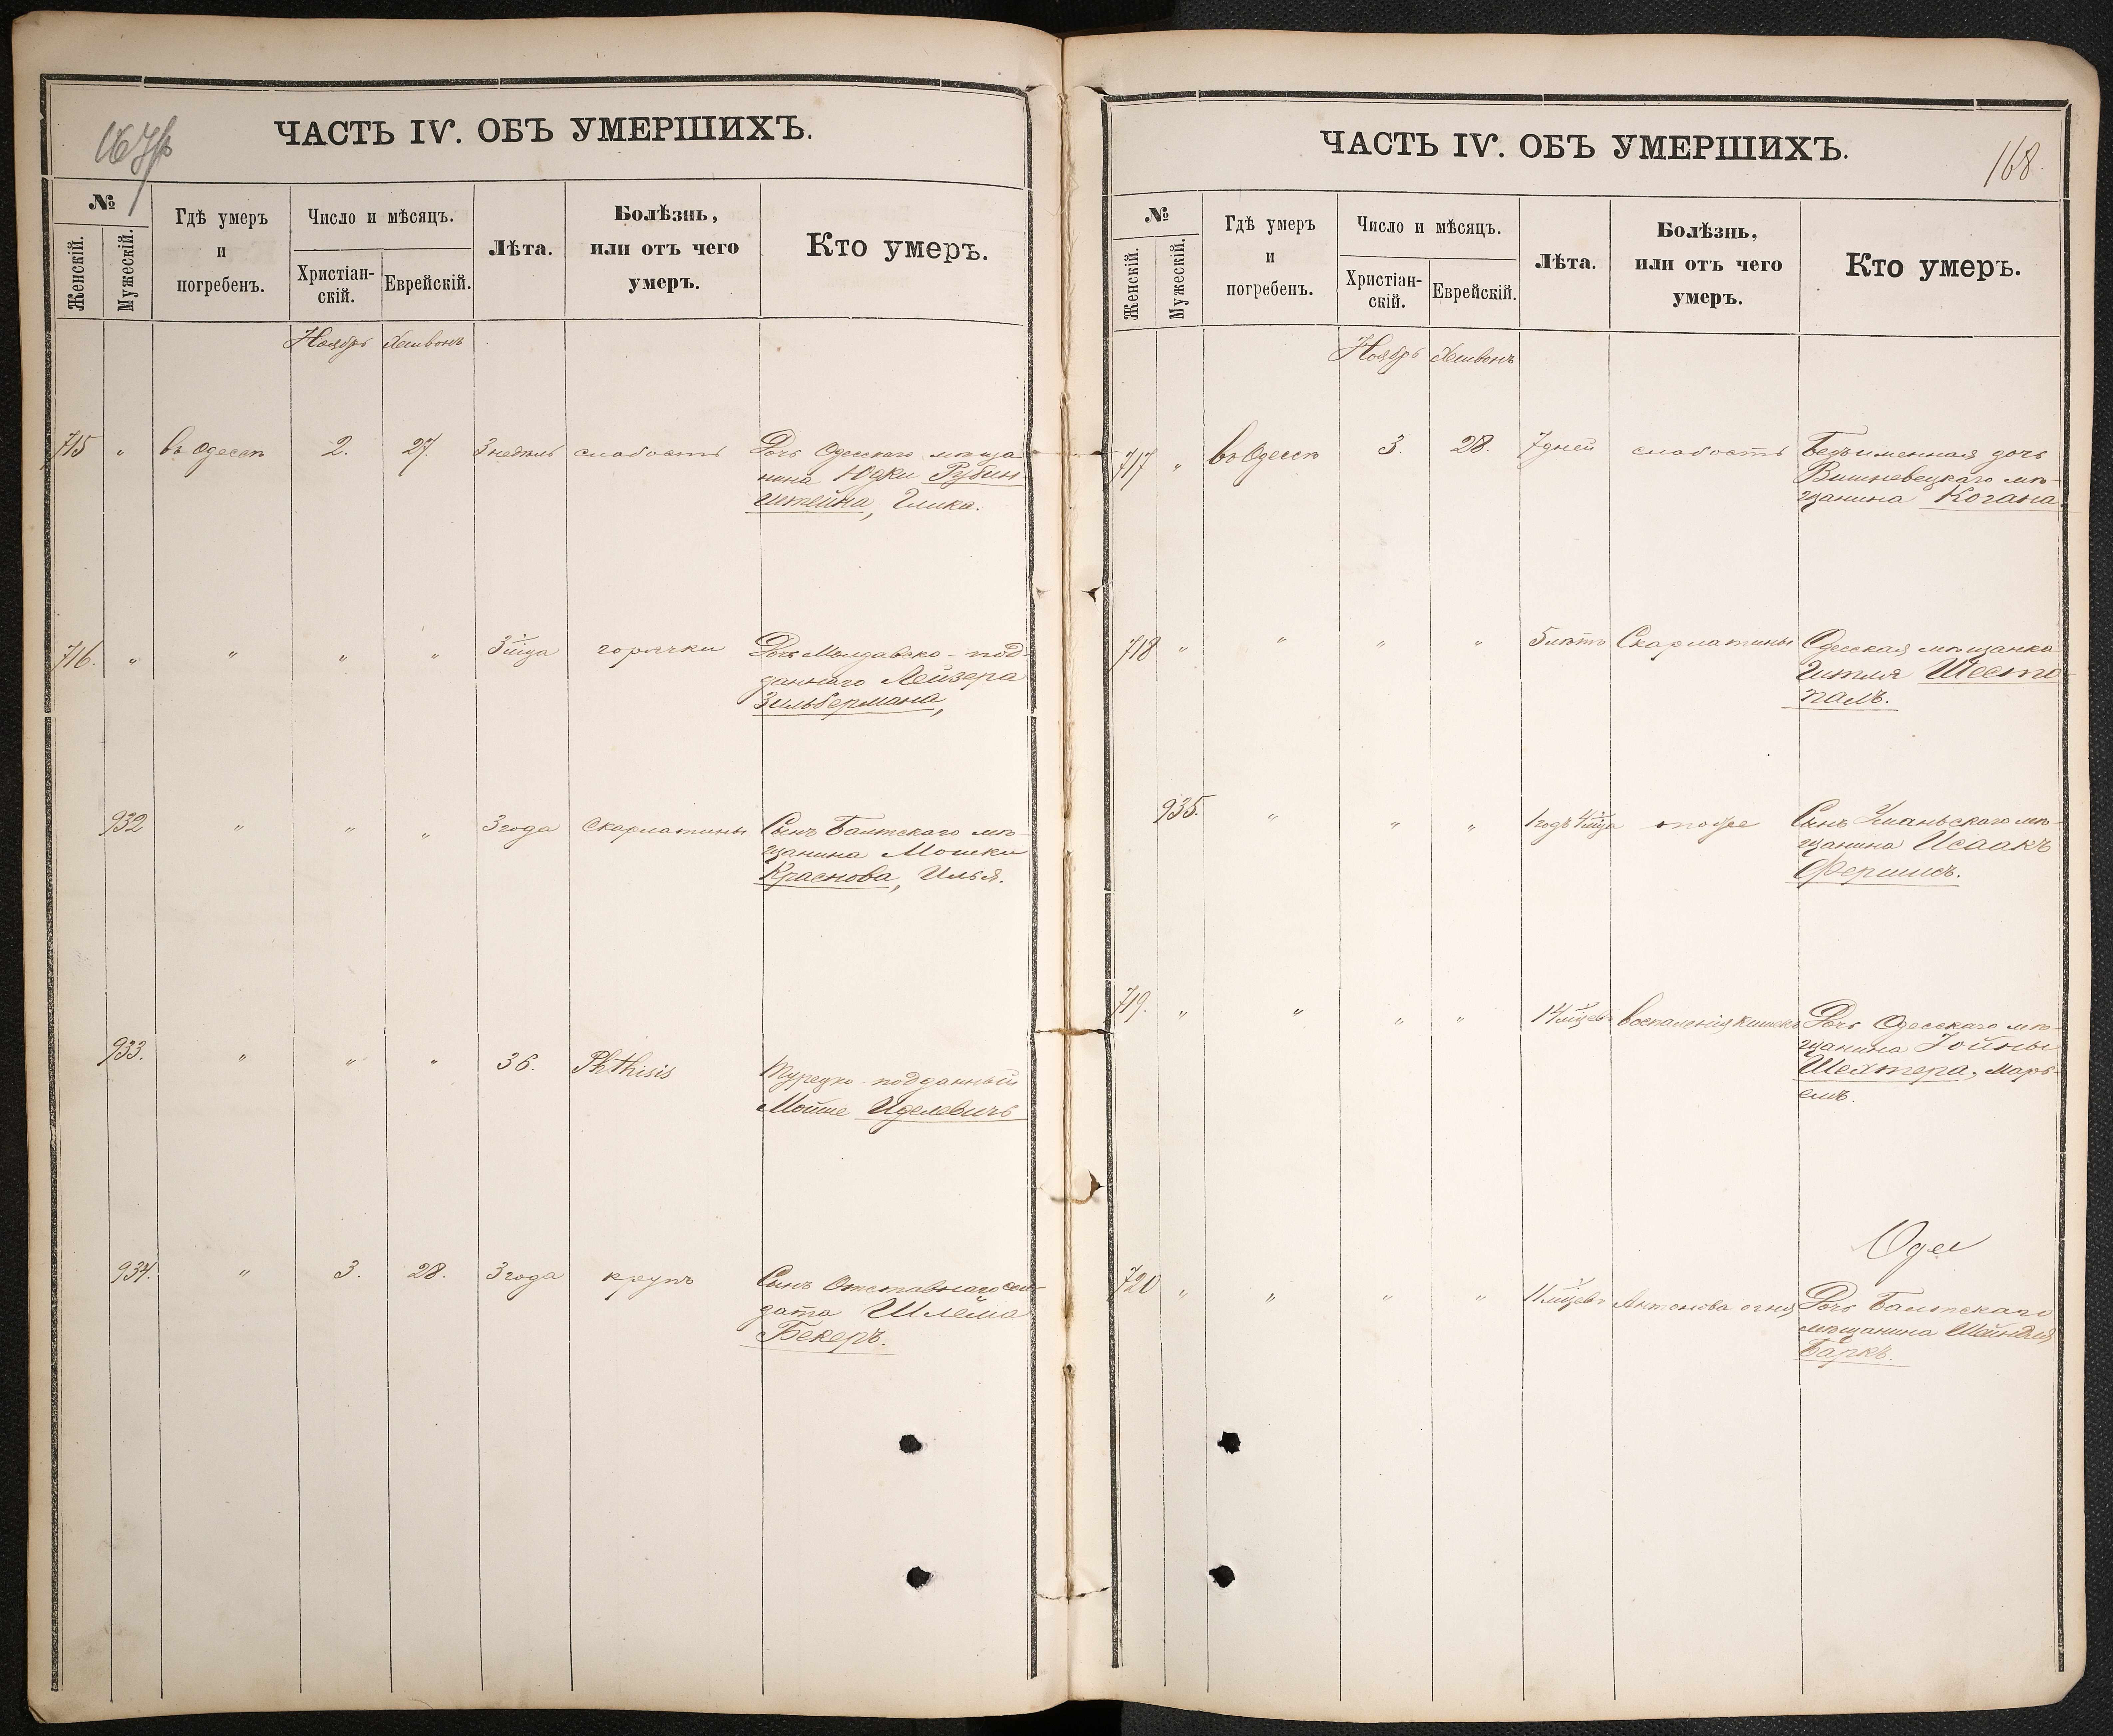 167 об
ЧАСТЬ IV. ОБЪ УМЕРШИХЪ.
№
Женскій.
Мужескій.
Гдѣ умеръ
и
погребенъ.
Число и мѣсяцъ.
Христіан-
скій.
Еврейскій.
Лѣта.
Болѣзнь,
или отъ чего
умеръ.
Кто умеръ.
Ноябрь Хешвонъ
715 " въ Одессѣ 2. 27. 3 недѣль слабость Дочь Одесскаго мѣща
нина Юдки Рубин
штейна, Глика.
716. " " " " 3 м‑ца горячки Дочь Молдавско-под-
даннаго Лейзера
Зильбермана,
932 " " " 3 года Скарлатины Сынъ Балтскаго мѣ-
щанина Мошки
Краснова, Илья.
933. " " " 36. Phthisis Турецко-подданный
Мойше Иделевичъ
934. " 3. 28. 3 года крупъ Сынъ Отставнаго сол-
дата Шлёма
Бекеръ.
168.
ЧАСТЬ IV. ОБЪ УМЕРШИХЪ.
№
Женскій.
Мужескій.
Гдѣ умеръ
и
погребенъ.
Число и мѣсяцъ.
Христіан-
скій.
Еврейскій.
Лѣта.
Болѣзнь,
или отъ чего
умеръ.
Кто умеръ.
Ноябрь Хешвонъ
717 " въ Одессѣ 3. 28. 7 дней слабость Безъименная дочь
Вишневецкаго мѣ-
щанина Когана.
718 " " " " 5 лѣтъ Скарлатины Одесская мѣщанка
Гитля Шесто
палъ.
935. " " " 1 годъ 4 м‑ца тоже Сынъ Уманьскаго мѣ-
щанина Исаакъ
719. " " " " 14 м‑цевъ воспаленія кишекъ Дочь Одесскаго мѣ-
щанина Іойны
Шехтера, Марь-
емъ.
Одес
720 " " " " 11 м‑цевъ Антонова огня Дочь Балтскаго
мѣщанина Шейндля
Баркъ.